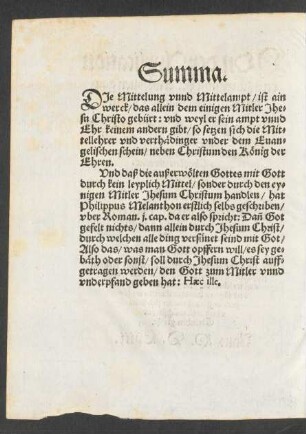 Summa.
DIe Mittelung vnnd Mittelampt / ist ain
werck / das allein dem einigen Mitler Jhe-
su Christo gebürt: vnd weyl er sein ampt vnnd
Ehr keinem andern gibt / so setzen sich die Mit-
tellehrer vnd verthädinger vnder dem Euan-
gelischen schein / neben Christum den König der
Ehren.
Vnd daß die außerwölten Gottes mit Gott
durch kein leyplich Mittel / sonder durch den ey-
nigen Mitler Jhesum Christum handlen / hat
Philippus Melanthon erstlich selbs geschriben /
vber Roman. j. cap. da er also spricht: Dañ Got
gefelt nichts / dann allein durch Jhesum Christ /
durch welchen alle ding versünet seind mit Got /
Also das / was man Gott opffern will / es sey ge-
bäth oder sonst / soll durch Jhesum Christ auff-
getragen werden / den Gott zum Mitler vnnd
vnderpfand geben hat: Hæc ille.